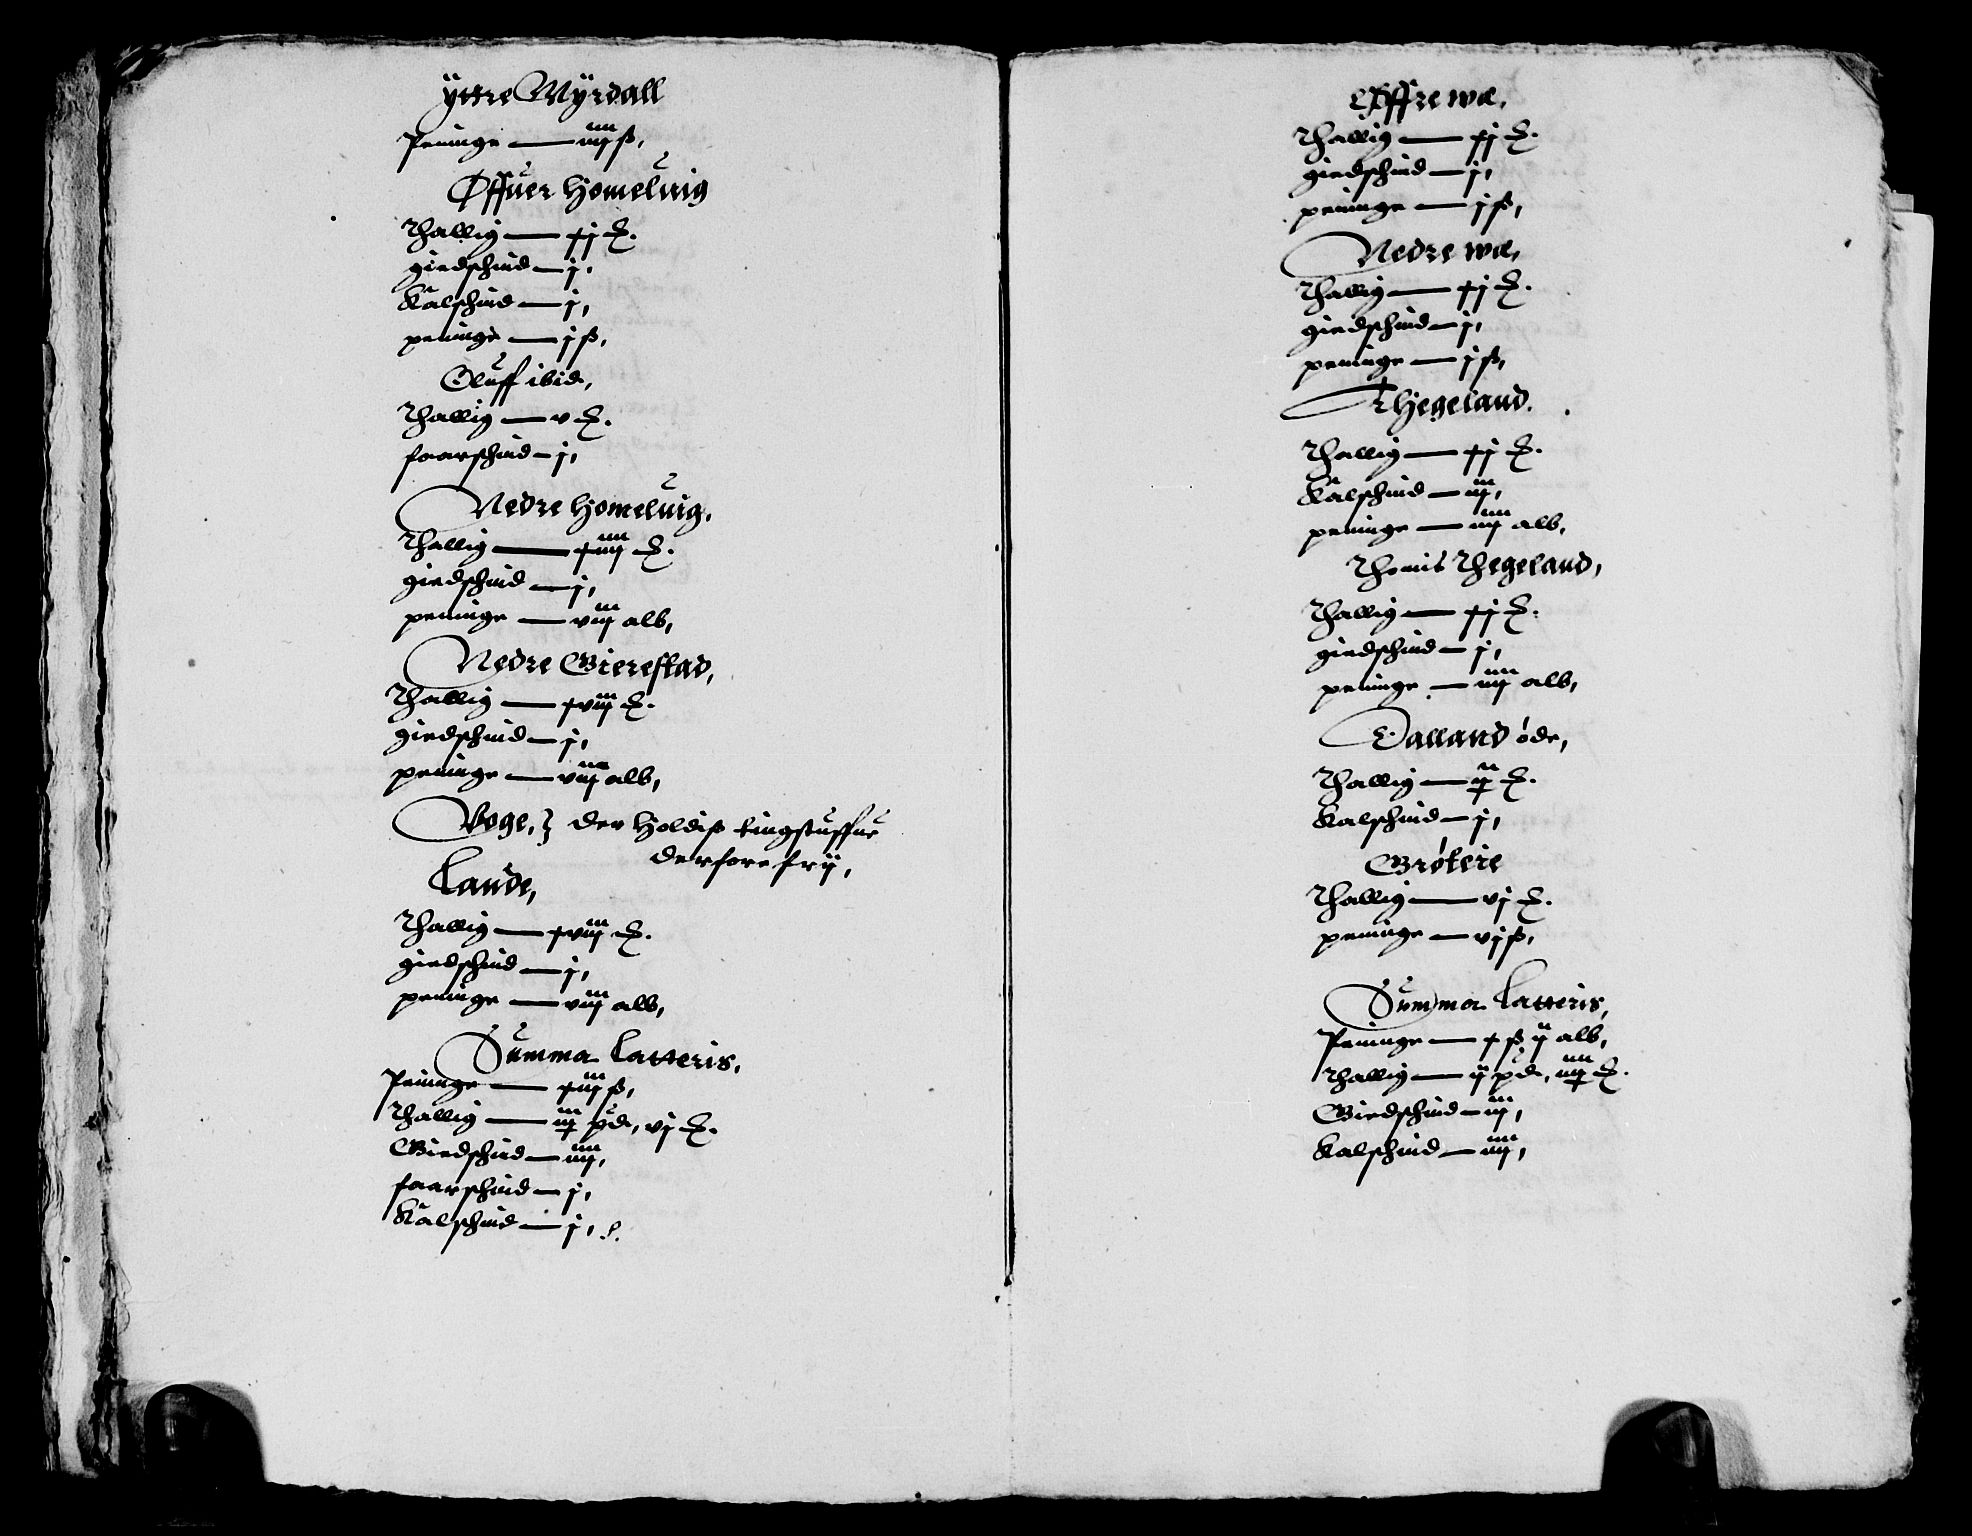 ÿttre Mÿrdall
Peninge — iiij ß,
Øffuer Homeluig
Thallig — xj ℔.
giedschind — j,
Kalschind — j,
peninge — j ß,
Oluff ibid,
Thallig — v ℔.
faarschind — j,
Nedre Homeluig,
Thallig — xiiij ℔.
giedschind — j,
peninge — viij alb,
Nedre Bierestad,
Thallig — xviij ℔.
giedschind — j,
peninge — viij alb,
Voge, } der Holdis tingstuffue
derfore frij,
Lande,
Thallig — xviij ℔.
giedschind — j,
peninge — viij alb,
Summa Latteris,
Peninge — xiij ß,
Thallig — iij pd, vj ℔.
Giedschind — iiij,
faarschind — j,
Kalschind — j,
Øffre wœ,
Thallig — xj ℔.
giedschind — j,
peninge — j ß,
Nedre wœ,
Thallig — xj ℔.
giedschind — j,
peninge — j ß,
Thegeland.
Thallig — xj ℔.
Kalschind — iij,
peninge — iiij alb,
Thomis Thegeland,
Thallig — xj ℔.
giedschind — j,
peninge — iiij alb,
Dalland øde,
Thallig — ij ℔.
Kalschind — j,
Brøtere
Thallig — vj ℔.
peninge — vj ß,
Summa Latteris,
Peninge — x ß ij alb,
Thallig — ij pd, iiij ℔.
Giedschind — iij,
Kalschind — iiij,